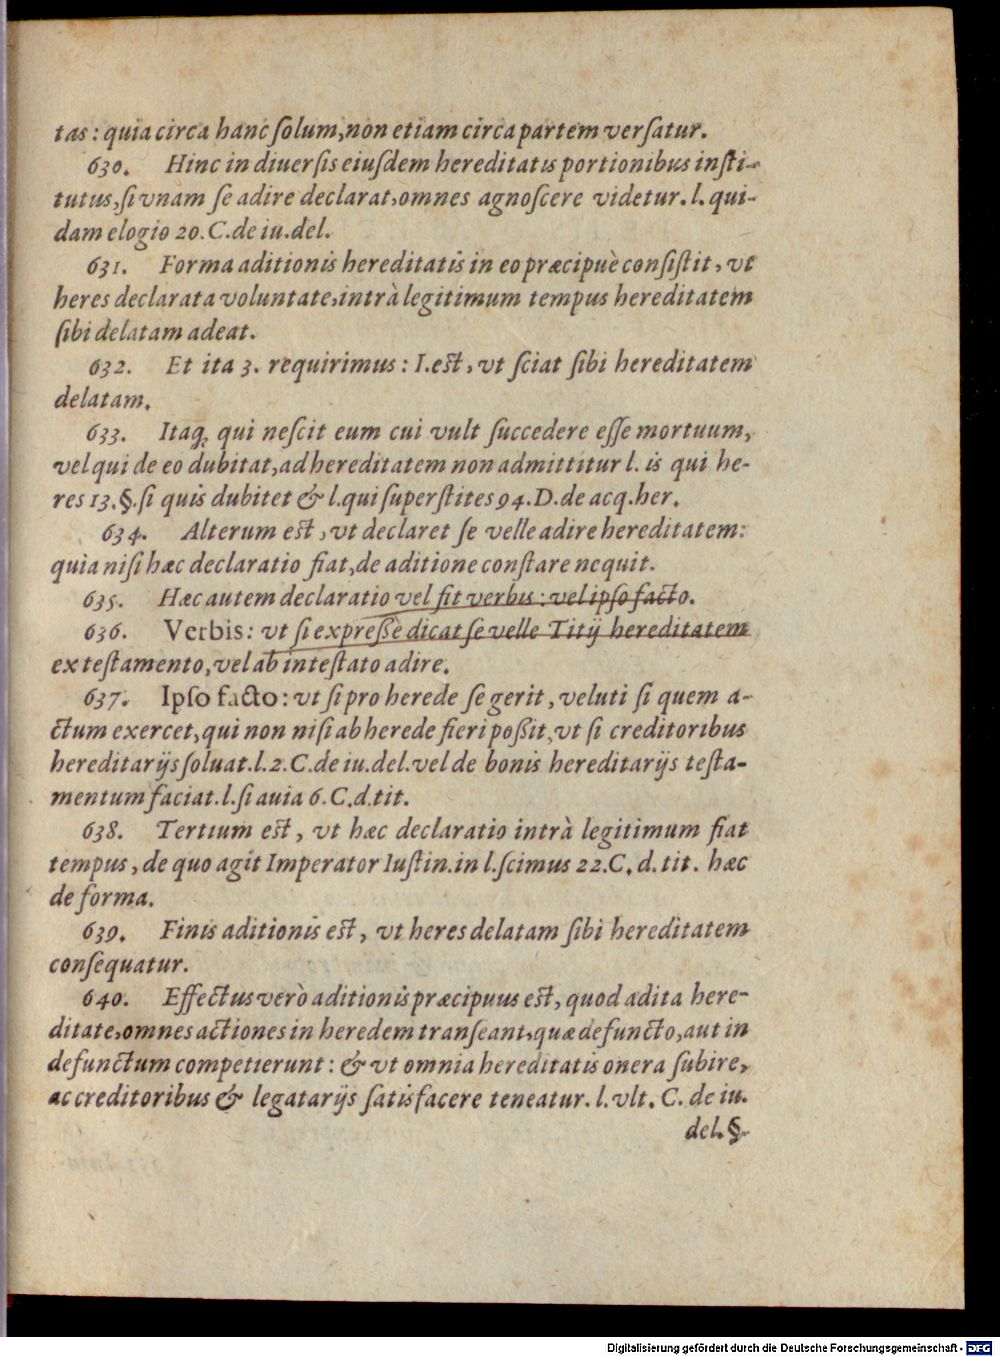 tas: quia circa hanc ſolum, non etiam circa partem verſatur.
630. Hinc in diuerſis eiuſdem hereditatis portionibus inſti-
tutus, ſi vnam ſe adire declarat, omnes agnoſcere videtur. l. qui-
dam elogio 20. C. de iu. del.
631. Forma aditionis hereditatis in eo præcipuè conſiſtit, vt
heres declarata voluntate, intrà legitimum tempus hereditatem
ſibi delatam adeat.
632. Et ita 3. requirimus: I. est, vt ſciat ſibi hereditatem
delatam.
633. Itaq; qui neſcit eum cui vult ſuccedere eſſe mortuum,
vel qui de eo dubitat, ad hereditatem non admittitur l. is qui he-
res 13. §. ſi quis dubitet & l. qui ſuperſtites 94. D. de acq. her.
634. Alterum est, vt declaret ſe velle adire hereditatem:
quia niſi hæc declaratio fiat, de aditione conſtare nequit.
635. Hæc autem declaratio vel fit verbis: vel ipſo facto.
636. Verbis: vt ſi expreſsè dicat ſe velle Titij hereditatem
ex teſtamento, vel ab inteſtato adire.
637. Ipſo facto: vt ſi pro herede ſe gerit, veluti ſi quem a-
ctum exercet, qui non niſi ab herede fieri poßit, vt ſi creditoribus
hereditarijs ſoluat. l. 2. C. de iu. del. vel de bonis hereditarijs teſta-
mentum faciat. l. ſi auia 6. C. d. tit.
638. Tertium est, vt hæc declaratio intrà legitimum fiat
tempus, de quo agit Imperator Iuſtin. in l. ſcimus 22. C. d. tit. hæc
de forma.
639. Finis aditionis est, vt heres delatam ſibi hereditatem
conſequatur.
640. Effectus verò aditionis præcipuus est, quod adita here-
ditate, omnes actiones in heredem tranſeant, quæ defuncto, aut in
defunctum competierunt: & vt omnia hereditatis onera ſubire,
ac creditoribus & legatarijs ſatisfacere teneatur. l. vlt. C. de iu.
del. §.
Digitalisierung gefördert durch die Deutsche Forschungsgemeinschaft - DFG